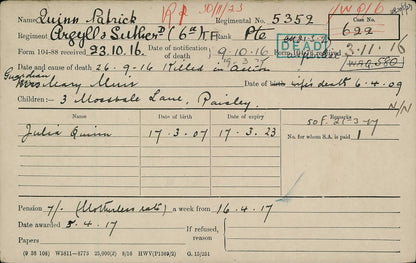 Name Quinn Patrick R.P. 30/11/23 Regimental No. 5352 /WO/6 Case No.
Regiment Argyll & Suther'd (6th) T.F. Rank Pte 622
Form 104-88 received 23.10.16. Date of notification of death 9-10-16 DEAD 3-11-16
Date and cause of death 26-9-16 Killed in action (WAG 5B0)
Guardian
Mrs Mary Muir Date of wife's death 6-4-09
Children:— 3 Mossvale Lane, Paisley. N/N
Name Date of birth Date of expiry Remarks
50F. 21-3-17
Julia Quinn 17-3-07 17-3-23 No. for whom S.A. is paid 1
Pension 7/- (Motherless rate) a week from 16-4-17
Date awarded 5-4-17
Papers
(9 38 106) W5811—8775 25,000(2) 8/16 HWV(P1369/2) G. 15/251